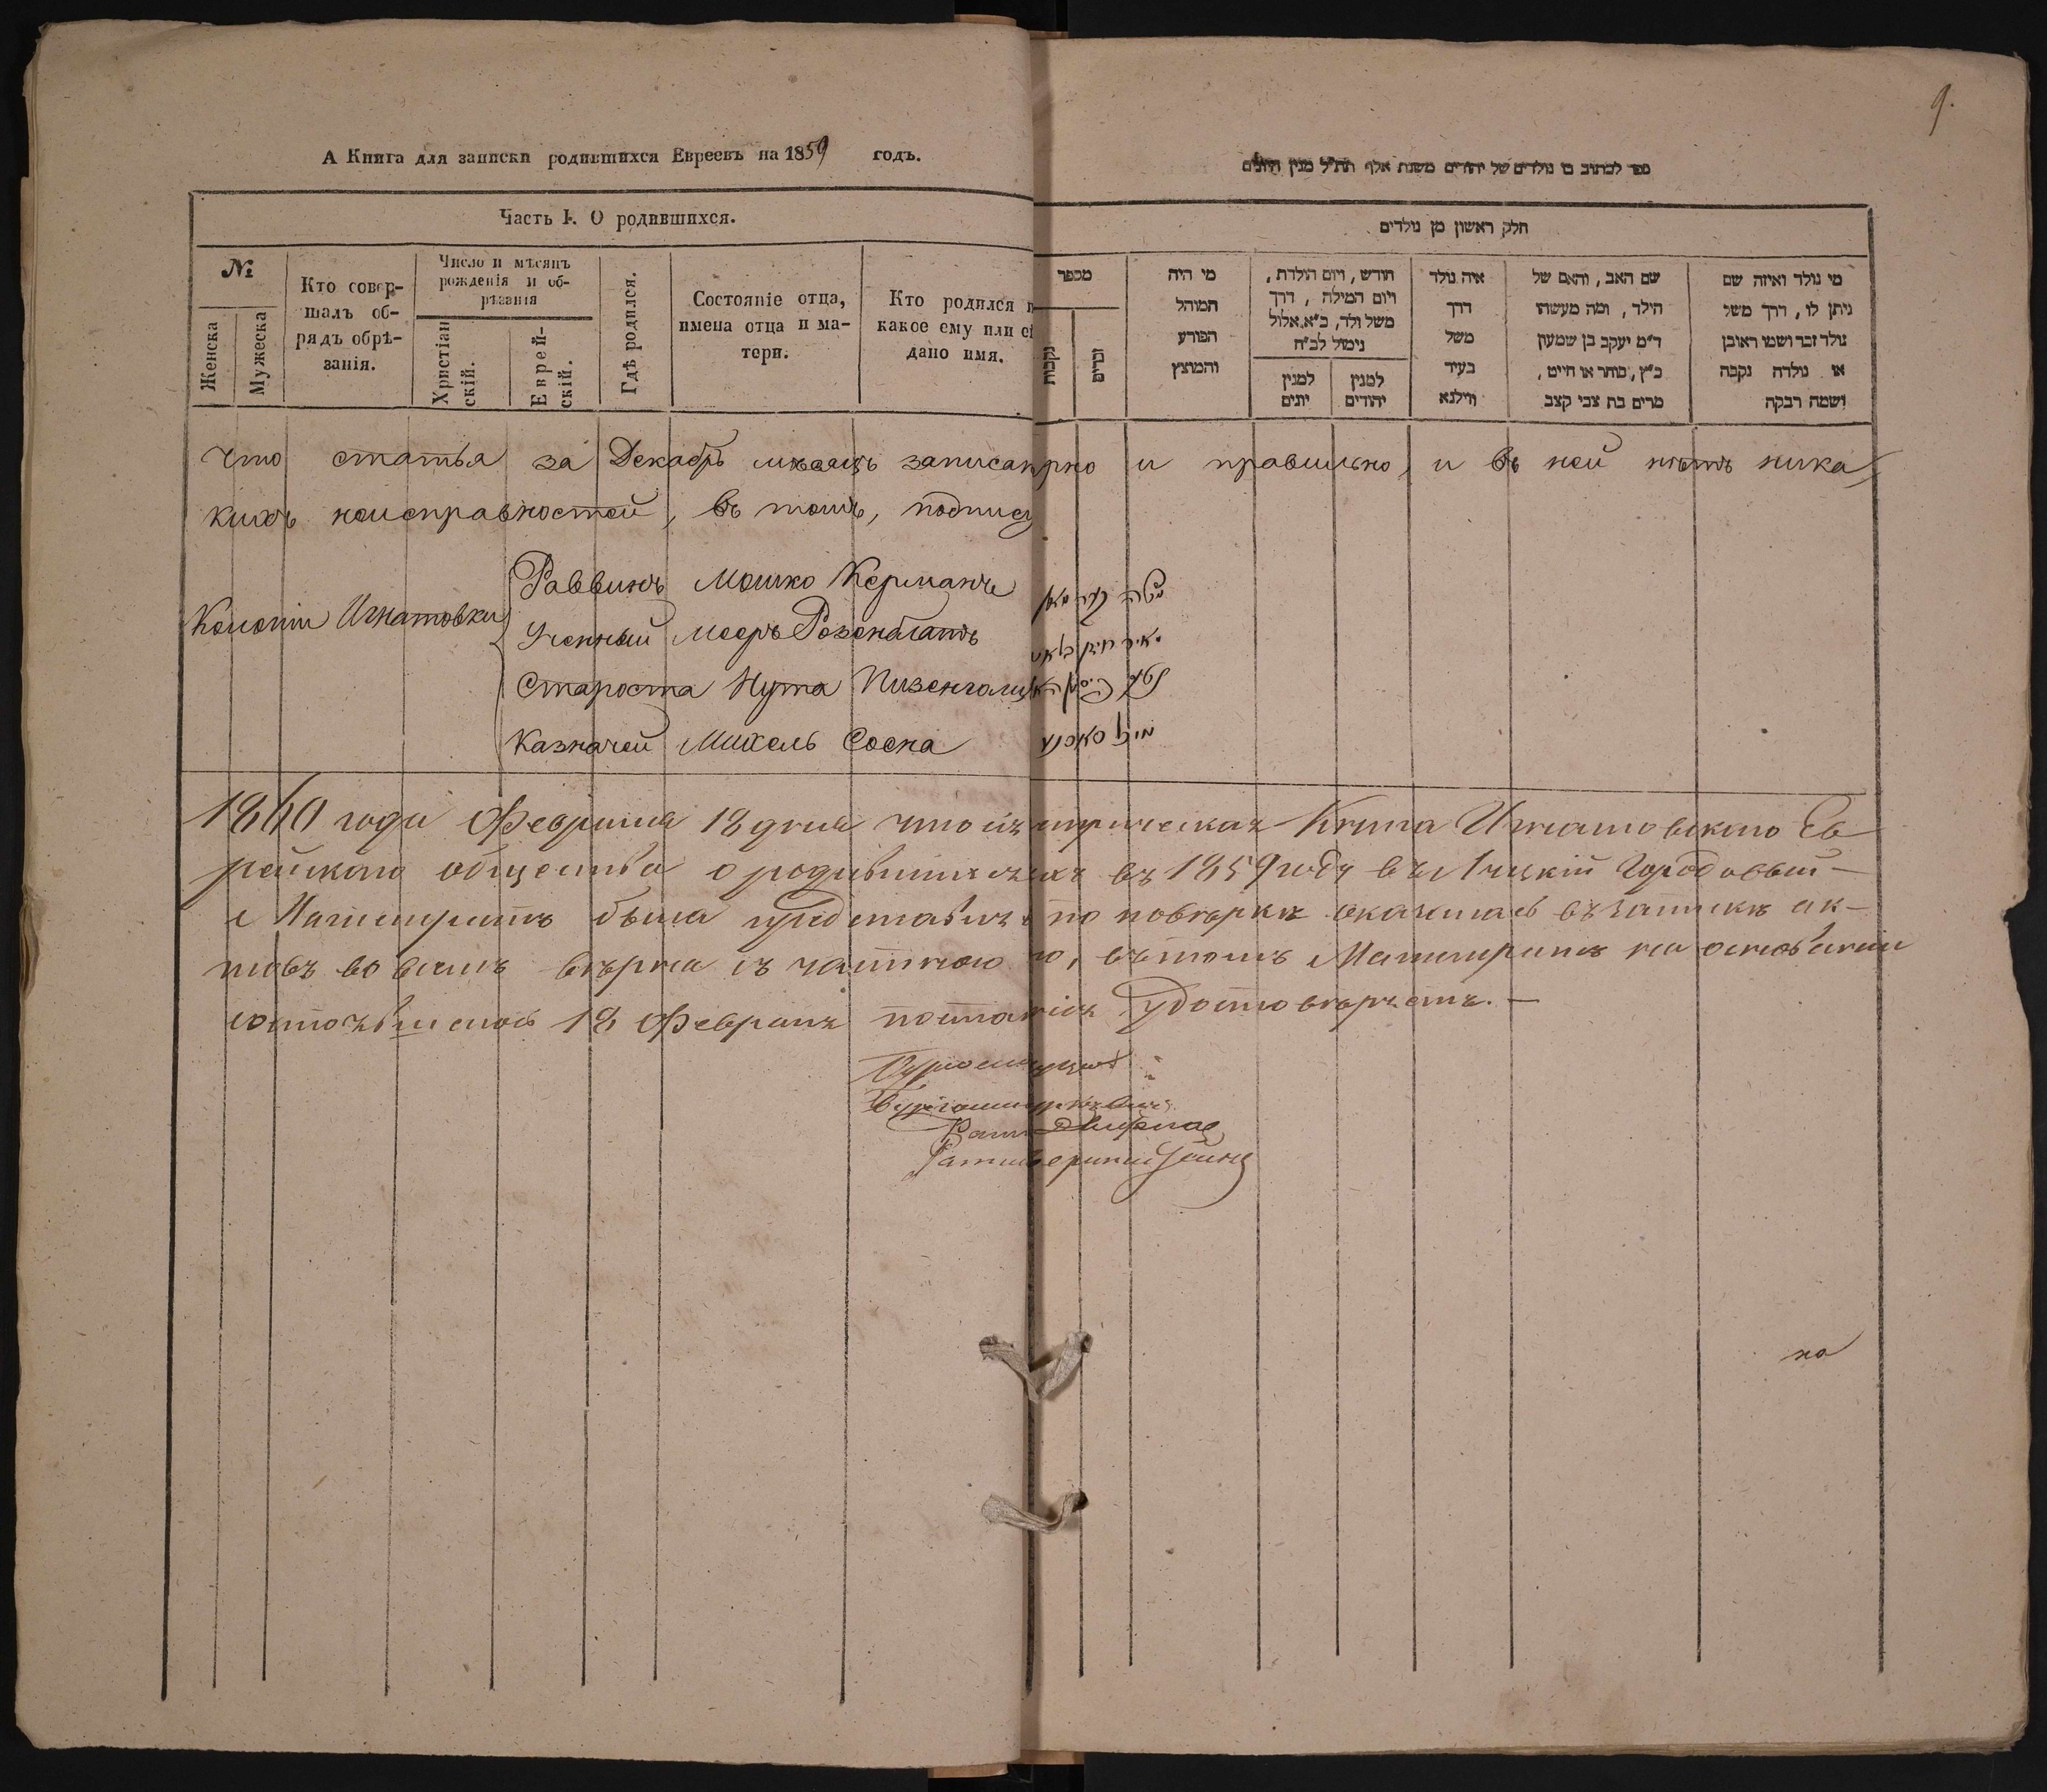 9.
А Книга для записки родившихся Евреевъ на 1859 годъ.
ספר לכתוב בו נולדים של יהודים משנת אלף תת״ל מנין היונים
Часть I. О родившихся.
חלק ראשון מן נולדים
№
Женска
Мужеска
Кто совер-
шалъ об-
рядъ обрѣ-
занія.
Число и мѣсяцъ
рожденія и об-
рѣзанія
Христіан
скій.
Еврей-
скій.
Гдѣ родился.
Состояніе отца,
имена отца и ма-
тери.
Кто родился и
какое ему или ей
дано имя.
מספר
נקבות
זכרים
מי היה
המוהל
הפורע
והמוצץ
חודש, ויום הולדת,
ויום המילה, דרך
משל ולד, כ״א אלול
נימול לכ״ח
למנין
יונים
למנין
יהודים
איה נולד
דרך
משל
בעיר
ווילנא
שם האב, והאם של
הילד, ומה מעשהו
ד״מ יעקב בן שמעון
כ״ץ, סוחר או חייט,
מרים בת צבי קצב
מי נולד ואיזה שם
ניתן לו, דרך משל
נולד זכר ושמו ראובן
או נולדה נקבה
ושמה רבקה
Что статья за Декабрь мѣсяцъ записанно и правильно, и въ ней нѣтъ ника
кихъ неисправностей, въ томъ, подпису
Колоніи Игнатовки
Раввинъ Мошко Керманъ
Ученный Мееръ Розенблатъ
מאיר רוזין בלאט
Староста Нута Пизенгольц
Казначей Михель Сосна
מיכל סאסנע
1860 года Февраля 18 дня что метрическая Книга Игнатовского Ев
рейского общества о родившихся въ 1859 году въ Луцкій Городовый
Магистратъ была представлена по повѣрке оказалась въ записке ак-
товъ во всемъ вѣрна съ частною, въ томъ Магистратъ на основаніи
состоявшегося 18 Февраля удостовѣряетъ. —
Бургомистръ
Ратм
но